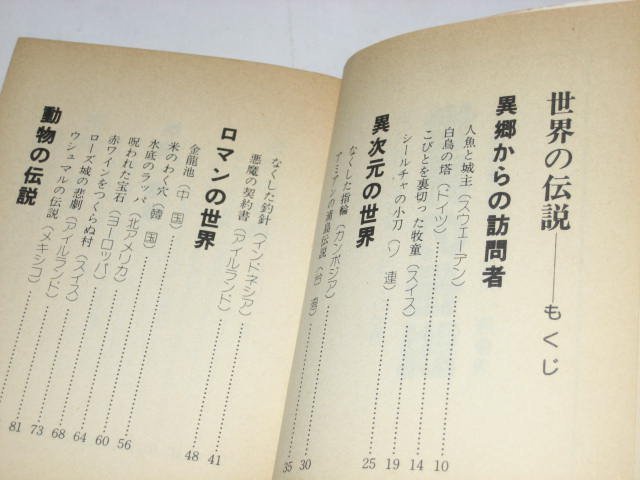 世界の伝説――もくじ
異郷からの訪問者
人魚と城主(スウェーデン)……10
白鳥の塔(ドイツ)……14
こびとを裏切った牧童(スイス)……19
シールチャの小刀(ソ連)……25
異次元の世界
なくした指輪(カンボジア)……30
の浦島伝説……35
なくした釣針(インドネシア)……41
悪魔の契約書(アイルランド)……48
ロマンの世界
金龍池(中国)……56
米のわく穴(韓国)……60
水底のラッパ(北アメリカ)……64
呪われた宝石(ヨーロッパ)……68
赤ワインをつくらぬ村(スイス)……73
ローズ城の悲劇(アイルランド)……81
ウシュマルの伝説(メキシコ)……
動物の伝説